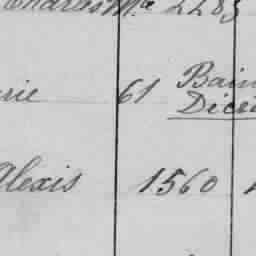 Charles Mce 2285
rie 61 Bain
Dicen
Alexis 1560